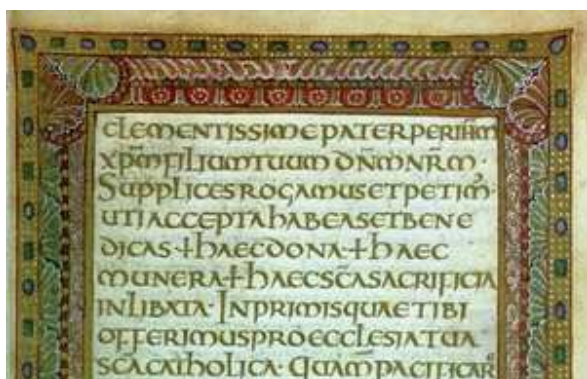 CLEMENTISSIME PATER PER IHM
XPM FILIUM TUUM DNM NRM ·
SUPPLICES ROGAMUS ET PETIM·
UTI ACCEPTA HABEAS ET BENE
DICAS + HAEC DONA + HAEC
MUNERA + HAEC SCA SACRIFICIA
INLIBATA · INPRIMIS QUAE TIBI
OFFERIMUS PRO ECCLESIA TUA
SCA CATHOLICA · QUAM PACIFICAR